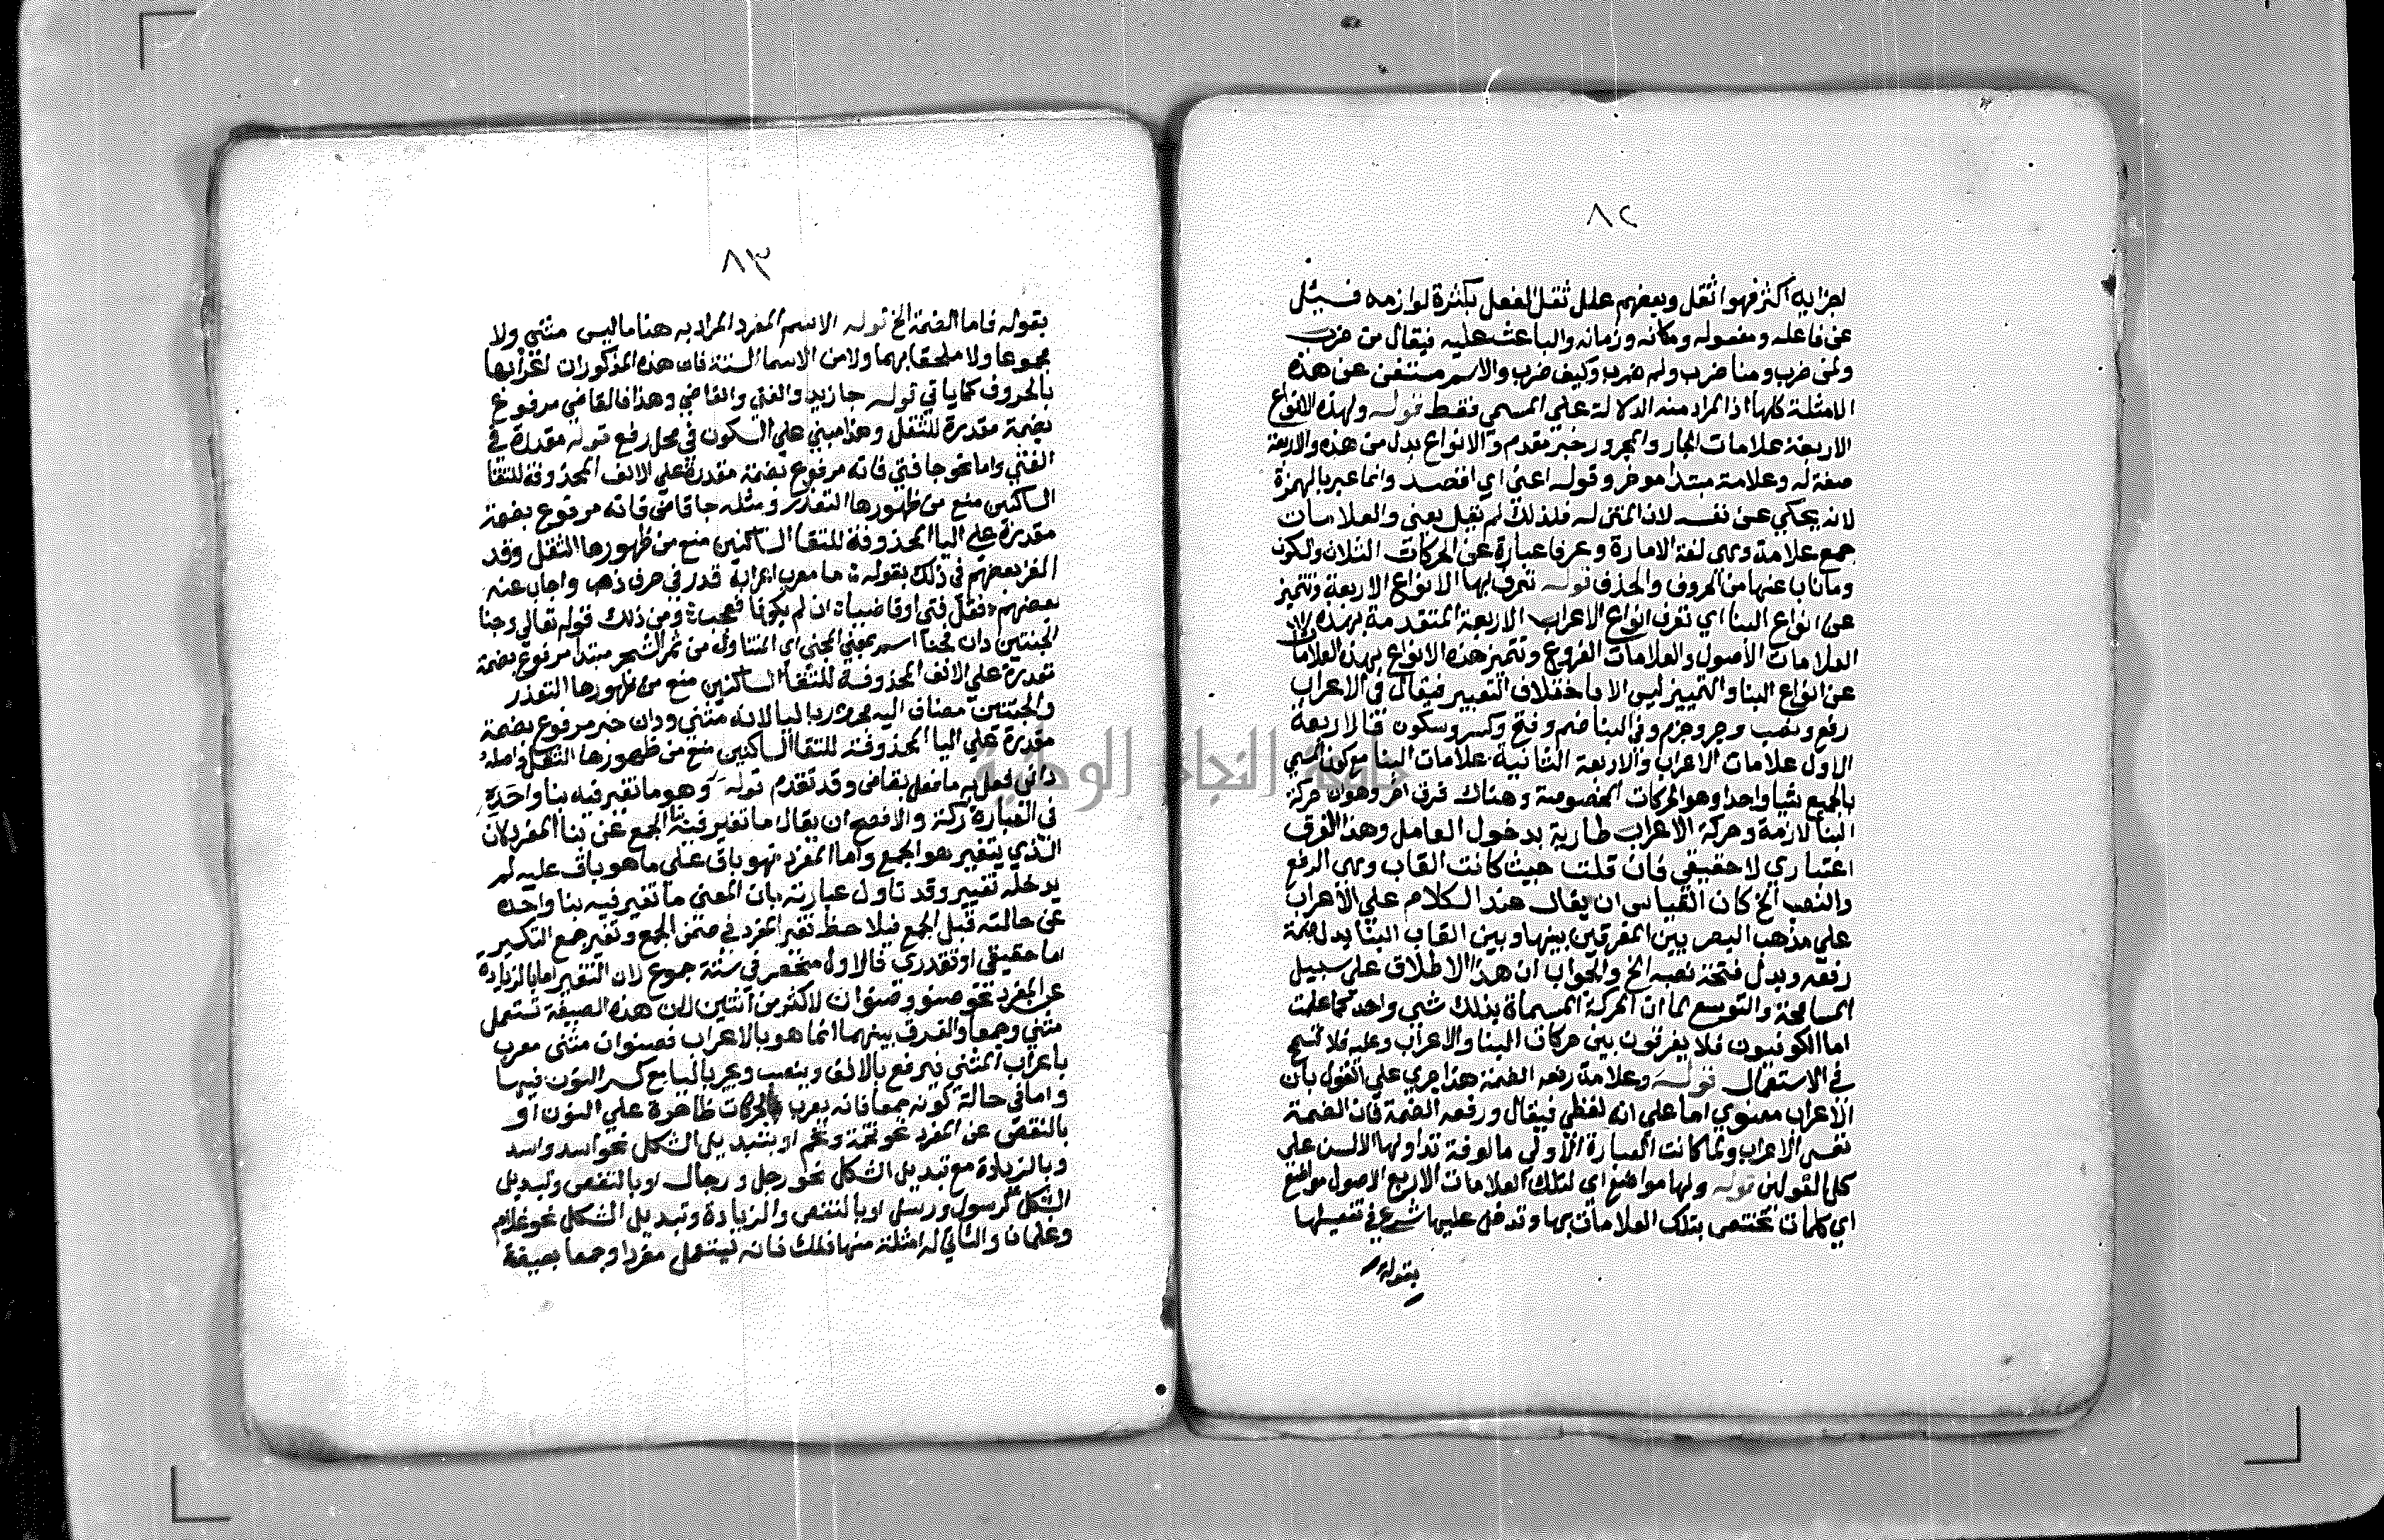 ٨٢
اجزايه اكثر فهو اثقل وبعضهم علل ثقل الفعل بكثرة لوازمه فسيئل
عن فاعله ومفعوله ومكانه وزمانه والباعث عليه فيقال من ضرب
ولمن ضرب ومتا ضرب ولم ضرب وكيف ضرب والاسم مستغن عن هذه
الامثلة كلها اذ المراد منه الدلالة علي المسمي فقط قوله ولهذه الانواع
الاربعة علامات الجار والمجرور خبر مقدم والانواع بدل من هذه والاربعة
صفة له وعلامة مبتدا موخر وقوله اعني اي اقصد وانما عبر بالهمزة
لانه يحكي عن نفسه لان المتن له فلذلك لم نقل يعني والعلامات
جمع علامة وهي لغة الامارة وعرفا عبارة عن الحركات الثلاث والسكون
وما ناب عنها من الحروف والحذف قوله تعرف بها الانواع الاربعة وتتميز
عن انواع البنا اي تعرف انواع الاعراب الاربعة المتقدمة بهذه
العلامات الاصول والعلامات الفروع وتتميز هذه الانواع بهذه العلامات
عن انواع البنا والتمييز ليس الا باختلاف التعبير فيقال في الاعراب
رفع ونصب وجر وجزم وفي البنا ضم وفتح وكسر وسكون فالاربعة
الاول علامات الاعراب والاربعة الثانية علامات البنا مع كون المسمي
بالجميع شيا واحدا وهو الحركات المخصوصة وهناك فرق اخر وهو ان حركة
البنا لازمة وحركة الاعراب طارية بدخول العامل وهذا الفرق
اعتباري لا حقيقي فان قلت حيث كانت القاب وهي الرفع
والنصب الخ كان القياس ان يقال هذا الكلام علي الاعراب
علي مذهب البصريين المفرقين بينها وبين القاب البنا بدل ضمة
رفعه وبدل فتحة نصبه الخ والجواب ان هذا الاطلاق علي سبيل
المسامحة والتوسع لما ان الحركة المسماة بذلك شي واحد كما علمت
اما الكوفيون فلا يفرقون بين حركات البنا والاعراب وعليه فلا تسمح
في الاستعمال قوله وعلامة رفعه الضمة هذا جري علي القول بان
الاعراب معنوي اما علي انه لفظي فيقال ورفعه الضمة فان الضمة
نفس الاعراب ولما كانت العبارة الاولي مالوفة تداولها الالسن علي
كلي القولين قوله ولها مواضع اي لتلك العلامات الاربع الاصول مواضع
اي كلمات تختص بتلك العلامات بها وتدخل عليها شرع في تفصيلها
بقوله
٨٣
بقوله فاما الضمة الخ قوله الاسم المفرد المراد به هنا ما ليس مثني ولا
مجموعا ولا ملحقا بهما ولا من الاسما الستة فان هذه المذكورات اعرابها
بالحروف كما ياتي قوله جا زيد والفتي والقاضي وهذا فالقاضي مرفوع
بضمة مقدرة للثقل وهذا مبني علي السكون في محل رفع قوله مقدرة في
الفتي واما نحو جا فتي فانه مرفوع بضمة مقدرة علي الالف المحذوفة للتقا
الساكنين منع من ظهورها التعذر ومثله جا قاض فانه مرفوع بضمة
مقدرة علي اليا المحذوفة للتقا الساكنين منع من ظهورها الثقل وقد
الغز بعضهم في ذلك بقوله ما معرب اعرابه قدر في حرف ذهب واجاب عنه
بعضهم فقل فتي او قاضيا ان لم يكونا فعجب ومن ذلك قوله تعالي وجنا
الجنتين دان فجنا اسم بمعني المجني اي المتناول من ثمر الشجر مبتدا مرفوع بضمة
مقدرة علي الالف المحذوفة للتقا الساكنين منع من ظهورها التعذر
والجنتين مضاف اليه مجرور باليا لانه مثني ودان خبر مرفوع بضمة
مقدرة علي اليا المحذوفة للتقا الساكنين منع من ظهورها الثقل واصله
داني فعل به ما فعل بقاض وقد تقدم قوله وهو ما تغير فيه بنا واحده
في العبارة ركة والافصح ان يقال ما تغير فيه بنا الجمع عن بنا المفرد لان
الذي يتغير هو الجمع واما المفرد فهو باق علي ما هو باق عليه لم
يدخله تغيير وقد تاول عبارته بان المعني ما تغير فيه بنا واحده
عن حالته قبل الجمع فيلاحظ تغير المفرد في ضمن الجمع وتغير جمع التكسير
اما حقيقي او تقديري فالاول منحصر في ستة جموع لان التغير اما بالزيادة
عن المفرد نحو صنو وصنوان لاكثر من اثنين لان هذه الصيغة تستعمل
مثني وجمعا والفرق بينهما انما هو بالاعراب فصنوان مثني معرب
باعراب المثني فيرفع بالالف وينصب ويجر باليا مع كسر النون فيها
واما في حالة كونه جمعا فانه يعرب بالحركات ظاهرة علي النون او
بالنقص عن المفرد نحو تخمة وتخم او بتبديل الشكل نحو اسد واسد
وبالزيادة مع تبديل الشكل نحو رجل ورجال او بالنقص وتبديل
الشكل كرسول ورسل او بالنقص والزيادة وتبديل الشكل نحو غلام
وغلمان والثاني له امثلة منها فلك فانه يستعمل مفردا وجمعا بصيغة